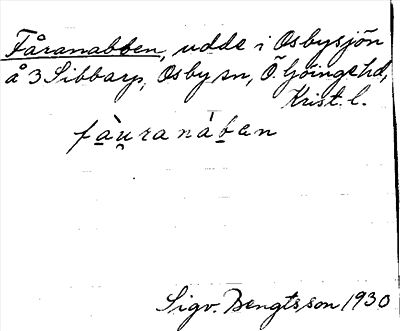 Fåranabben, udde i Osbysjön
å 3 Sibbarp, Osby sn, Ö. Göinge hd,
Krist. l.
fàu̯ranáben
Sigv. Bengtsson 1930